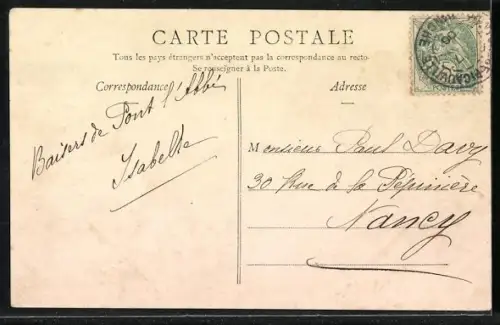 CARTE POSTALE
Tous les pays étrangers n'acceptent pas la correspondance au recto
Se renseigner à la Poste.
Correspondance
Adresse
Baisers de Pont l'Abbé
Isabelle
Monsieur Paul Davy
30 Rue de la Pépinière
Nancy